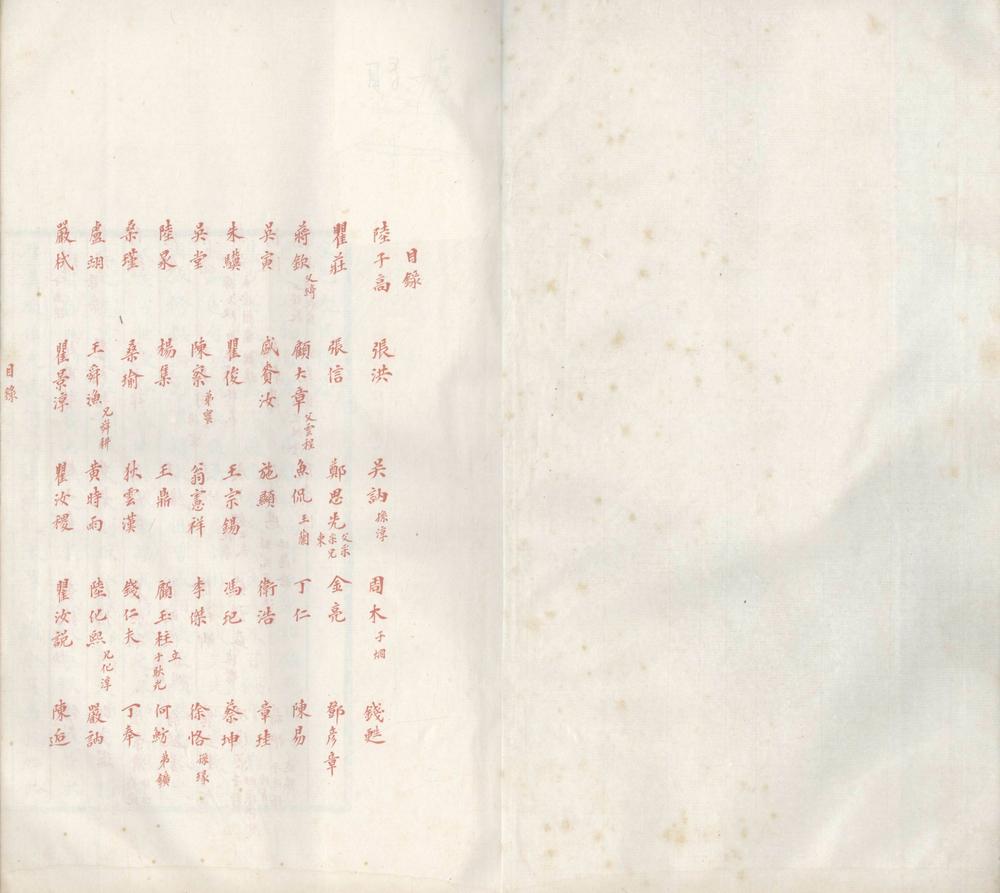 目錄
陸子高 張洪 吳訥 孫淳 周木 子炯 錢甦
瞿莊 張信 鄭思先 父采 采兄東 金亮 鄧彥章
蔣欽 父綺 顧大章 父雲程 魚侃 王蘭 丁仁 陳易
吳寅 咸賚汝 施顯 衛浩 章珪
朱驥 瞿俊 王宗錫 馮玘 蔡坤
吳堂 陳察 弟寰 翁憲祥 李傑 徐恪 孫緣
陸杲 楊集 王鼎 顧玉柱 子耿光 立 何鈁 弟鑛
桑瑾 桑瑜 狄雲漢 錢仁夫 丁奉
盧翊 王舜漁 兄舜耕 黃時雨 陸化熙 兄化淳 嚴訥
嚴栻 瞿景淳 瞿汝稷 瞿汝說 陳逅
目錄